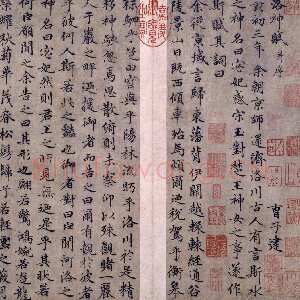 洛神賦 并序
曹子建
黄初三年余朝京師還濟洛川古人有言斯水
之神名曰宓妃感宋玉對楚王神女之事遂作
斯賦其詞曰
余從京域言歸東藩背伊闕越轘轅經通谷
陵景山日既西傾車殆馬煩爾迺税駕乎蘅皋
秣駟乎芝田容與乎陽林流眄乎洛川於是精
移神駭忽焉思散俯則未察仰以殊觀睹一麗
人于巖之畔迺援御者而告之曰爾有覿於彼者
乎彼何人斯若此之豔也御者對曰臣聞河洛之
神名曰宓妃然則君王之所見無迺是乎其狀若
何臣願聞之余告之曰其形也翩若驚鴻婉若遊龍
榮曜秋菊華茂春松髣髴兮若輕雲之蔽